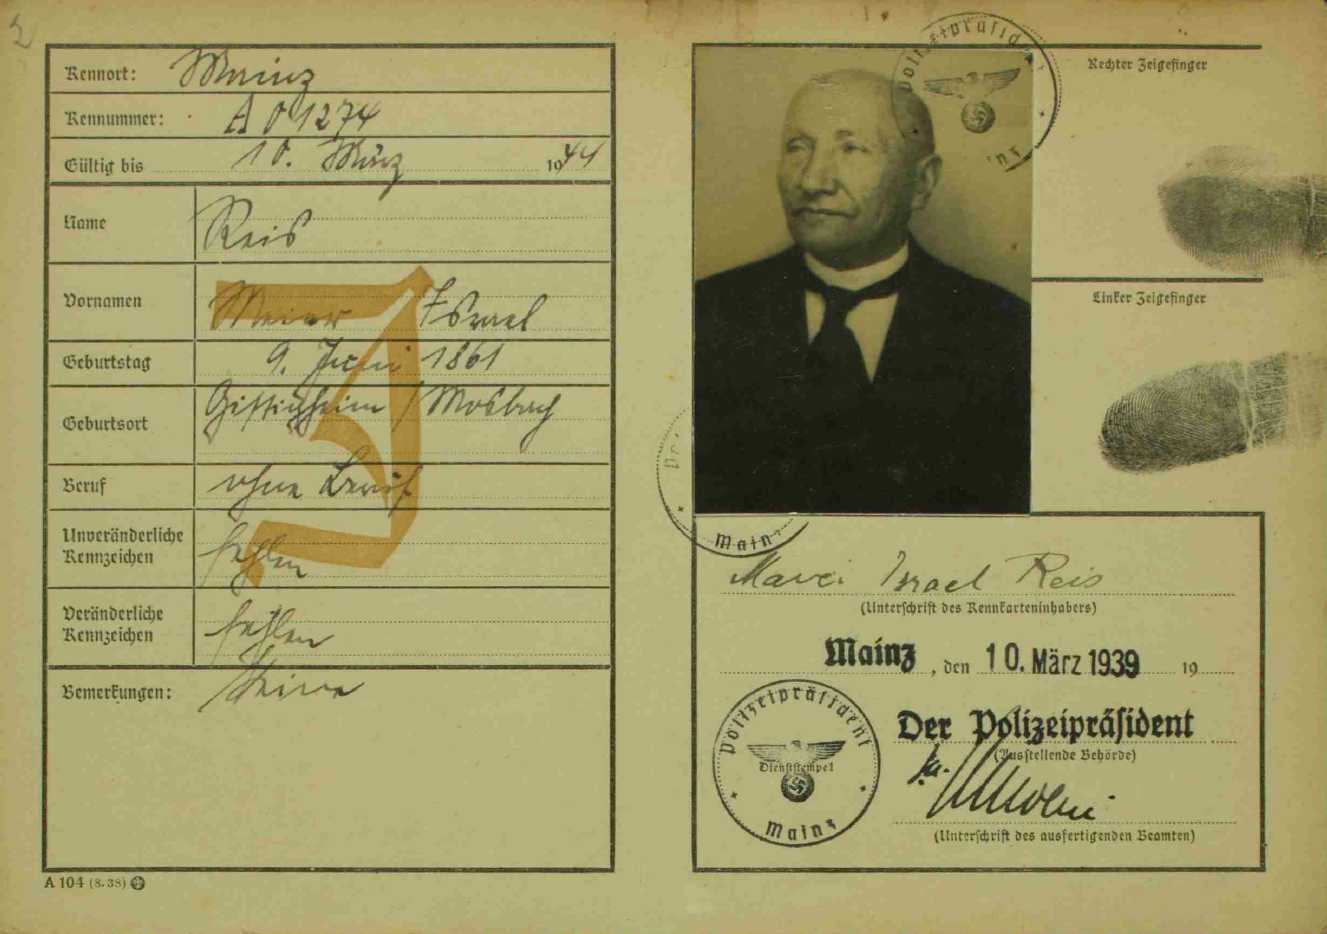 2
Kennort: Mainz
Kennummer: A 01274
Gültig bis 10. März 1944
Name Reis
Vornamen Meier Israel
Geburtstag 9. Juni 1861
Geburtsort Gissigheim / Mosbach
Beruf ohne Beruf
Unveränderliche
Kennzeichen fehlen
Veränderliche
Kennzeichen fehlen
Bemerkungen: Keine
J
A 104 (8. 38)
Polizeipräsident
Rechter Zeigefinger
Linker Zeigefinger
Mainz
Israel Reis
(Unterschrift des Kennkarteninhabers)
Mainz, den 10. März 1939 19
Polizeipräsident
Dienststempel
Mainz
Der Polizeipräsident
(Ausstellende Behörde)
(Unterschrift des ausfertigenden Beamten)